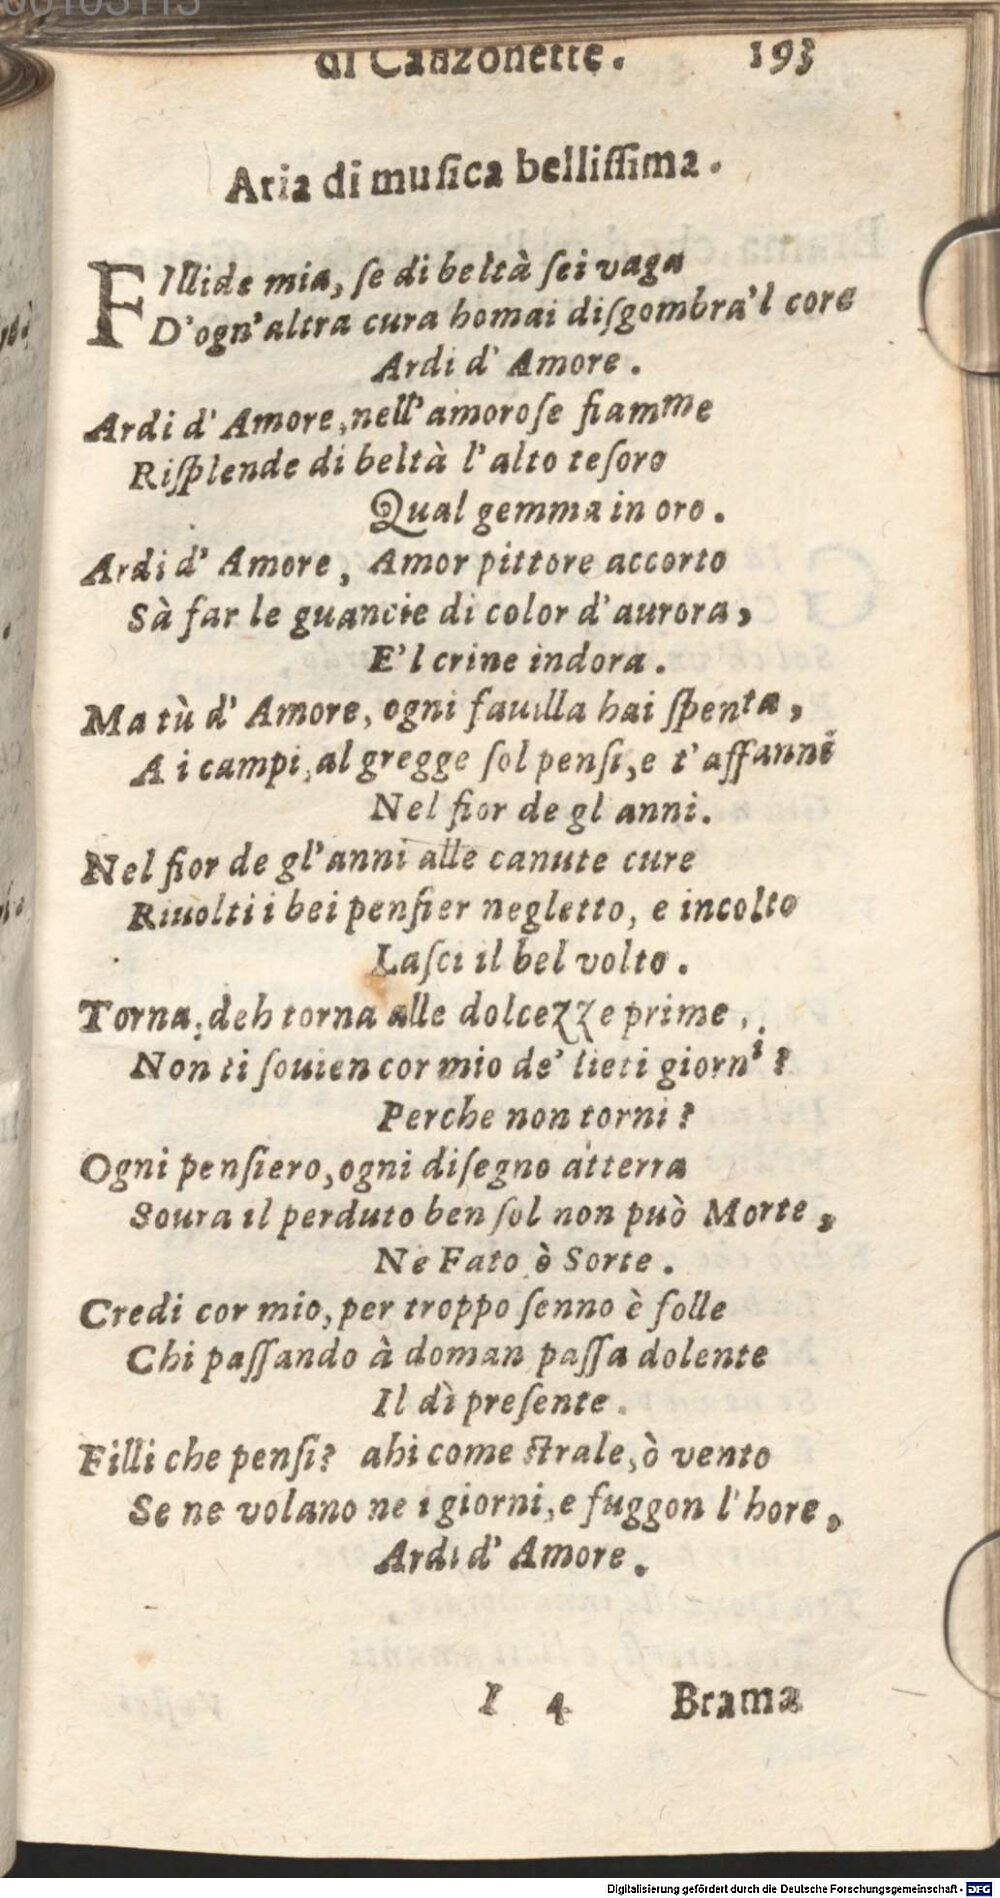 di Canzonette. 193
Aria di muſica belliſſima.
FIllide mia, ſe di beltà ſei vaga
D'ogn'altra cura homai diſgombra'l core
Ardi d' Amore.
Ardi d' Amore, nell'amoroſe fiamme
Riſplende di beltà l'alto teſoro
Qual gemma in oro.
Ardi d' Amore, Amor pittore accorto
Sà far le guancie di color d'aurora,
E'l crine indora.
Ma tù d' Amore, ogni fauilla hai ſpenta,
A i campi, al gregge ſol penſi, e t'affanni
Nel fior de gl anni.
Nel fior de gl'anni alle canute cure
Riuolti i bei penſier negletto, e incolto
Laſci il bel volto.
Torna, deh torna alle dolcezze prime,
Non ti ſouien cor mio de' lieti giorni?
Perche non torni?
Ogni penſiero, ogni diſegno atterra
Soura il perduto ben ſol non può Morte,
Ne Fato ò Sorte.
Credi cor mio, per troppo ſenno è folle
Chi paſſando à doman paſſa dolente
Il dì preſente.
Filli che penſi? ahi come ſtrale, ò vento
Se ne volano ne i giorni, e fuggon l'hore,
Ardi d' Amore.
I 4 Brama
Digitalisierung gefördert durch die Deutsche Forschungsgemeinschaft - DFG